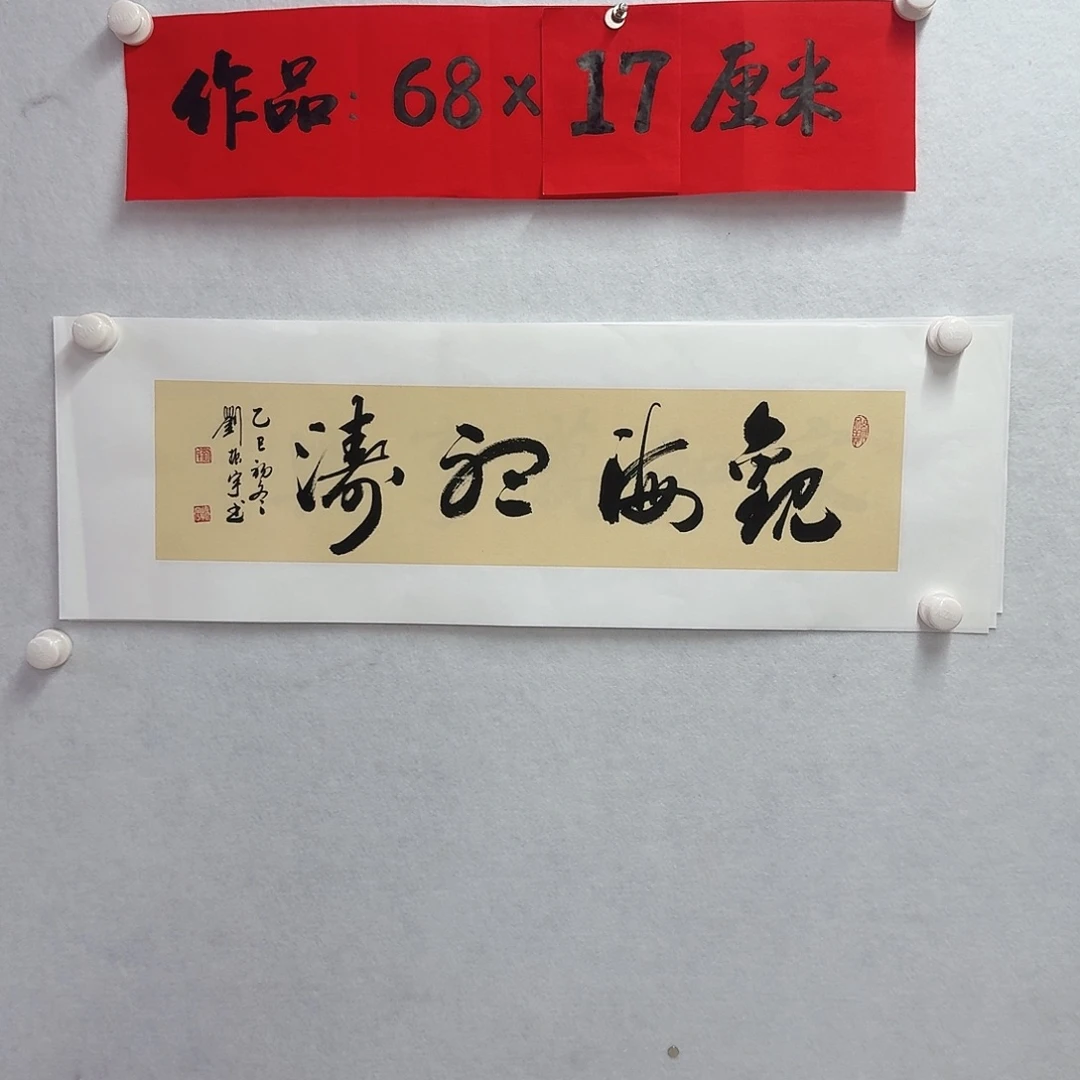 作品:68×17厘米
觀海聽濤
乙巳初冬
劉振宇书